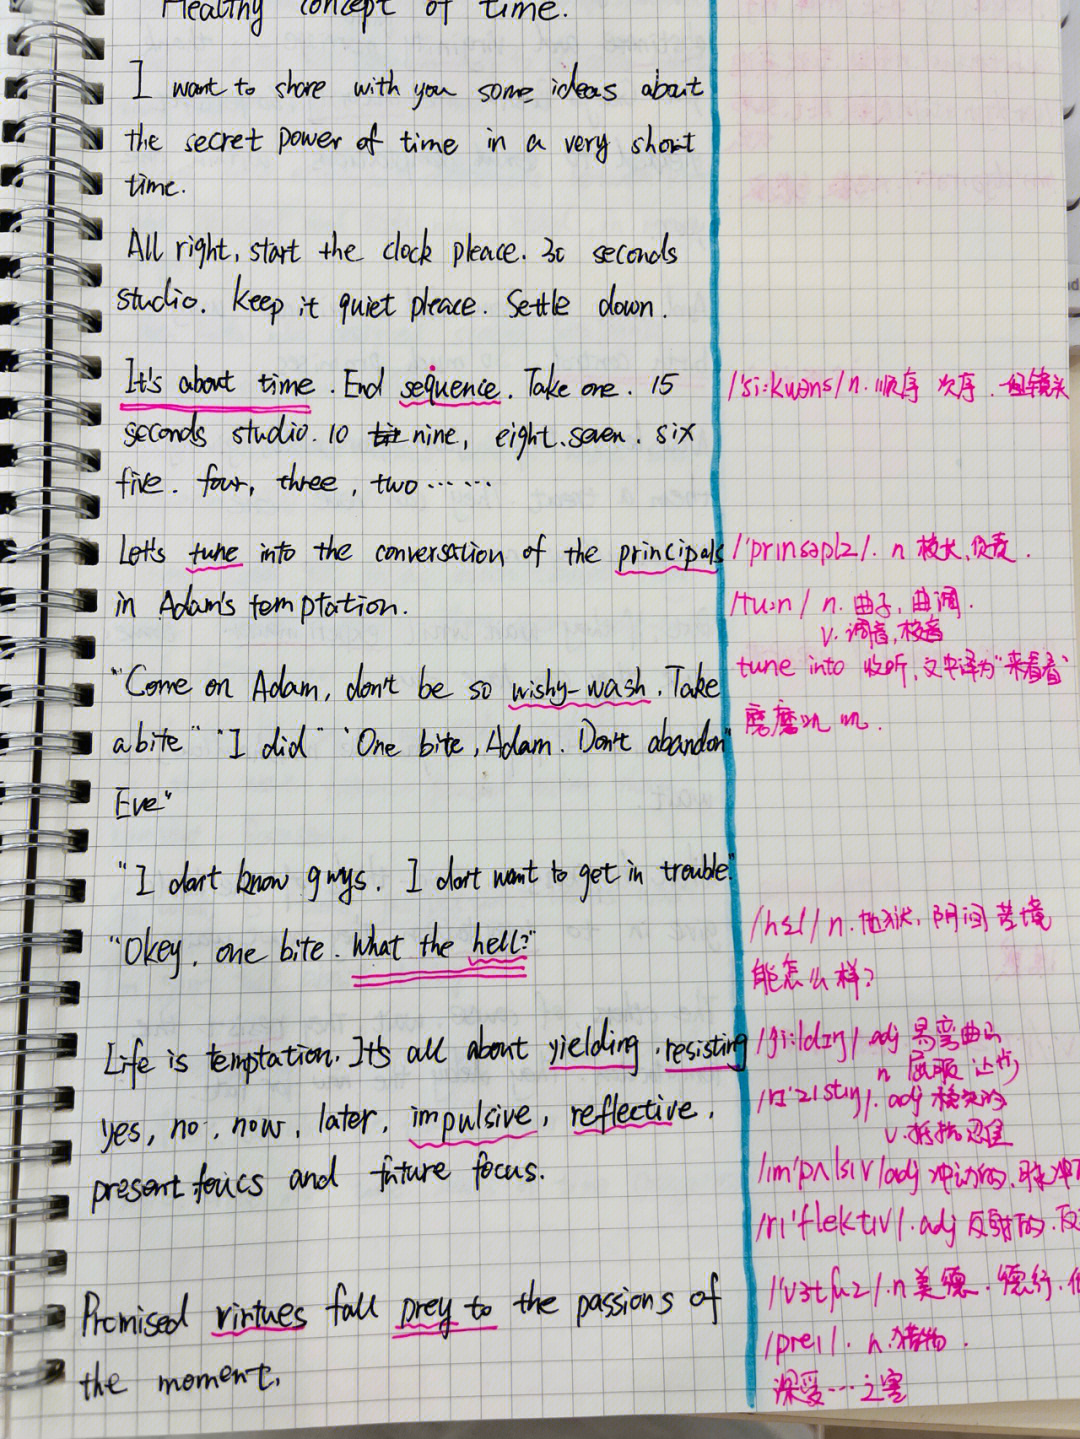 Healthy concept of time.
I want to share with you some ideas about
the secret power of time in a very short
time.
All right, start the clock pleace. 30 seconds
studio. Keep it quiet pleace. Settle down.
It's about time. End sequence. Take one. 15
seconds studio. 10 nine, eight. seven. six
five. four, three, two ……
Let's tune into the conversation of the principals
in Adam's temptation.
"Come on Adam, don't be so wishy-wash. Take
a bite" "I did" "One bite, Adam. Don't abandon
Eve"
"I don't know guys. I don't want to get in trouble"
"Okey, one bite. What the hell?"
Life is temptation. It's all about yielding. resisting
yes, no, now, later, impulsive, reflective,
present foucs and future focus.
Promised virtues fall prey to the passions of
the moment.
/'si:kwəns/ n. 顺序 次序. 组镜头
/'prinsəplz/. n 校长,负责.
/tu:n/ n. 曲子, 曲调.
v. 调音,校音
tune into 收听,文中译为"来看看"
磨磨叽叽.
/hɛl/ n. 地狱, 阴间 苦境
能怎么样?
/ji:ldɪŋ/ adj 易弯曲的
n 屈服 让步
/rɪ'zɪstɪŋ/. adj 稳定的
v. 抵抗 忍住
/im'pʌlsɪv/ adj 冲动的.
/rɪ'flektɪv/. adj 反射的.
/'vɜtʃuz/. n 美德. 德行.
/preɪ/. n. 猎物.
深受…之害